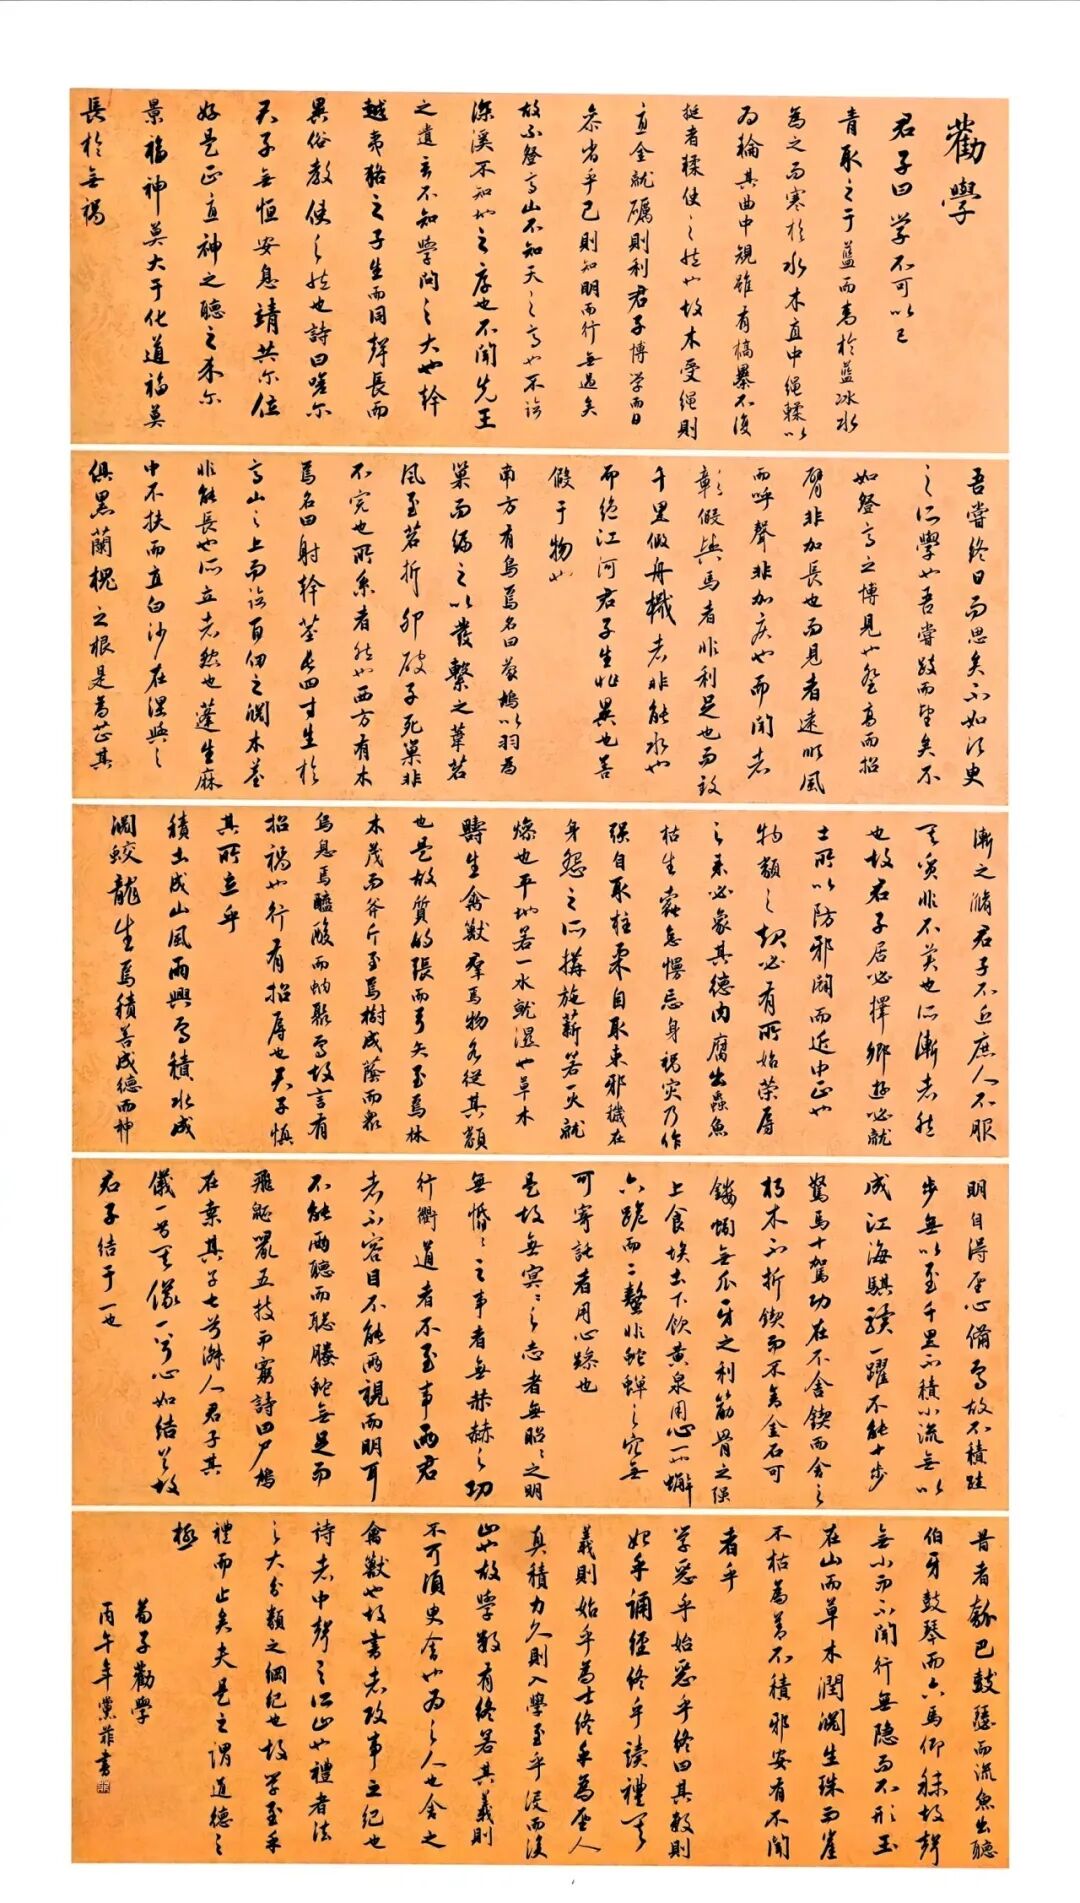 勸學
君子曰學不可以已
青取之于藍而青於藍冰水
為之而寒於水木直中繩輮以
為輪其曲中規雖有槁暴不復
挺者輮使之然也故木受繩則
直金就礪則利君子博學而日
叅省乎己則知明而行無過矣
故不登高山不知天之高也不臨
深溪不知地之厚也不聞先王
之遺言不知學問之大也幹
越夷貉之子生而同聲長而
異俗教使之然也詩曰嗟爾
君子無恒安息靖共爾位
好是正直神之聽之介爾
景福神莫大于化道福莫
長於無禍
吾嘗終日而思矣不如須臾
之所學也吾嘗跂而望矣不
如登高之博見也登高而招
臂非加長也而見者遠順風
而呼聲非加疾也而聞者
彰假輿馬者非利足也而致
千里假舟檝者非能水也
而絕江河君子生非異也善
假于物也
南方有鳥焉名曰蒙鳩以羽為
巢而編之以髮繫之葦苕
風至苕折卵破子死巢非
不完也所系者然也西方有木
焉名曰射幹莖長四寸生於
高山之上而臨百仞之淵木莖
非能長也所立者然也蓬生麻
中不扶而直白沙在涅與之
俱黑蘭槐之根是為芷其
漸之滫君子不近庶人不服
其質非不美也所漸者然
也故君子居必擇鄉遊必就
士所以防邪闢而近中正也
物類之起必有所始榮辱
之來必象其德肉腐出蟲魚
枯生蠹怠慢忘身禍災乃作
强自取柱柔自取束邪穢在
身怨之所構施薪若一火就
燥也平地若一水就濕也草木
疇生禽獸羣焉物各從其類
也是故質的張而弓矢至焉林
木茂而斧斤至焉樹成蔭而眾
鳥息焉醯酸而蚋聚焉故言有
招禍也行有招辱也君子慎
其所立乎
積土成山風雨興焉積水成
淵蛟龍生焉積善成德而神
明自得聖心備焉故不積跬
步無以至千里不積小流無以
成江海騏驥一躍不能十步
駑馬十駕功在不舍鍥而舍之
朽木不折鍥而不舍金石可
鏤螾無爪牙之利筋骨之强
上食埃土下飲黃泉用心一也蟹
六跪而二螯非蛇蟬之穴無
可寄託者用心躁也
是故無冥冥之志者無昭昭之明
無惛惛之事者無赫赫之功
行衢道者不至事兩君
者不容目不能兩視而明耳
不能兩聽而聰螣蛇無足而
飛鼫鼠五技而窮詩曰尸鳩
在桑其子七兮淑人君子其
儀一兮其儀一兮心如結兮故
君子結于一也
昔者瓠巴鼓瑟而流魚出聽
伯牙鼓琴而六馬仰秣故聲
無小而不聞行無隐而不形玉
在山而草木潤淵生珠而崖
不枯為善不積邪安有不聞
者乎
學惡乎始惡乎終曰其數則
始乎誦經終乎讀禮其
義則始乎為士終乎為聖人
真積力久則入學至乎沒而後
止也故學數有終若其義則
不可須臾舍也為之人也舍之
禽獸也故書者政事之紀也
詩者中聲之所止也禮者法
之大分類之綱紀也故學至乎
禮而止矣夫是之謂道德之
極
荀子勸學
丙午年黨菲書